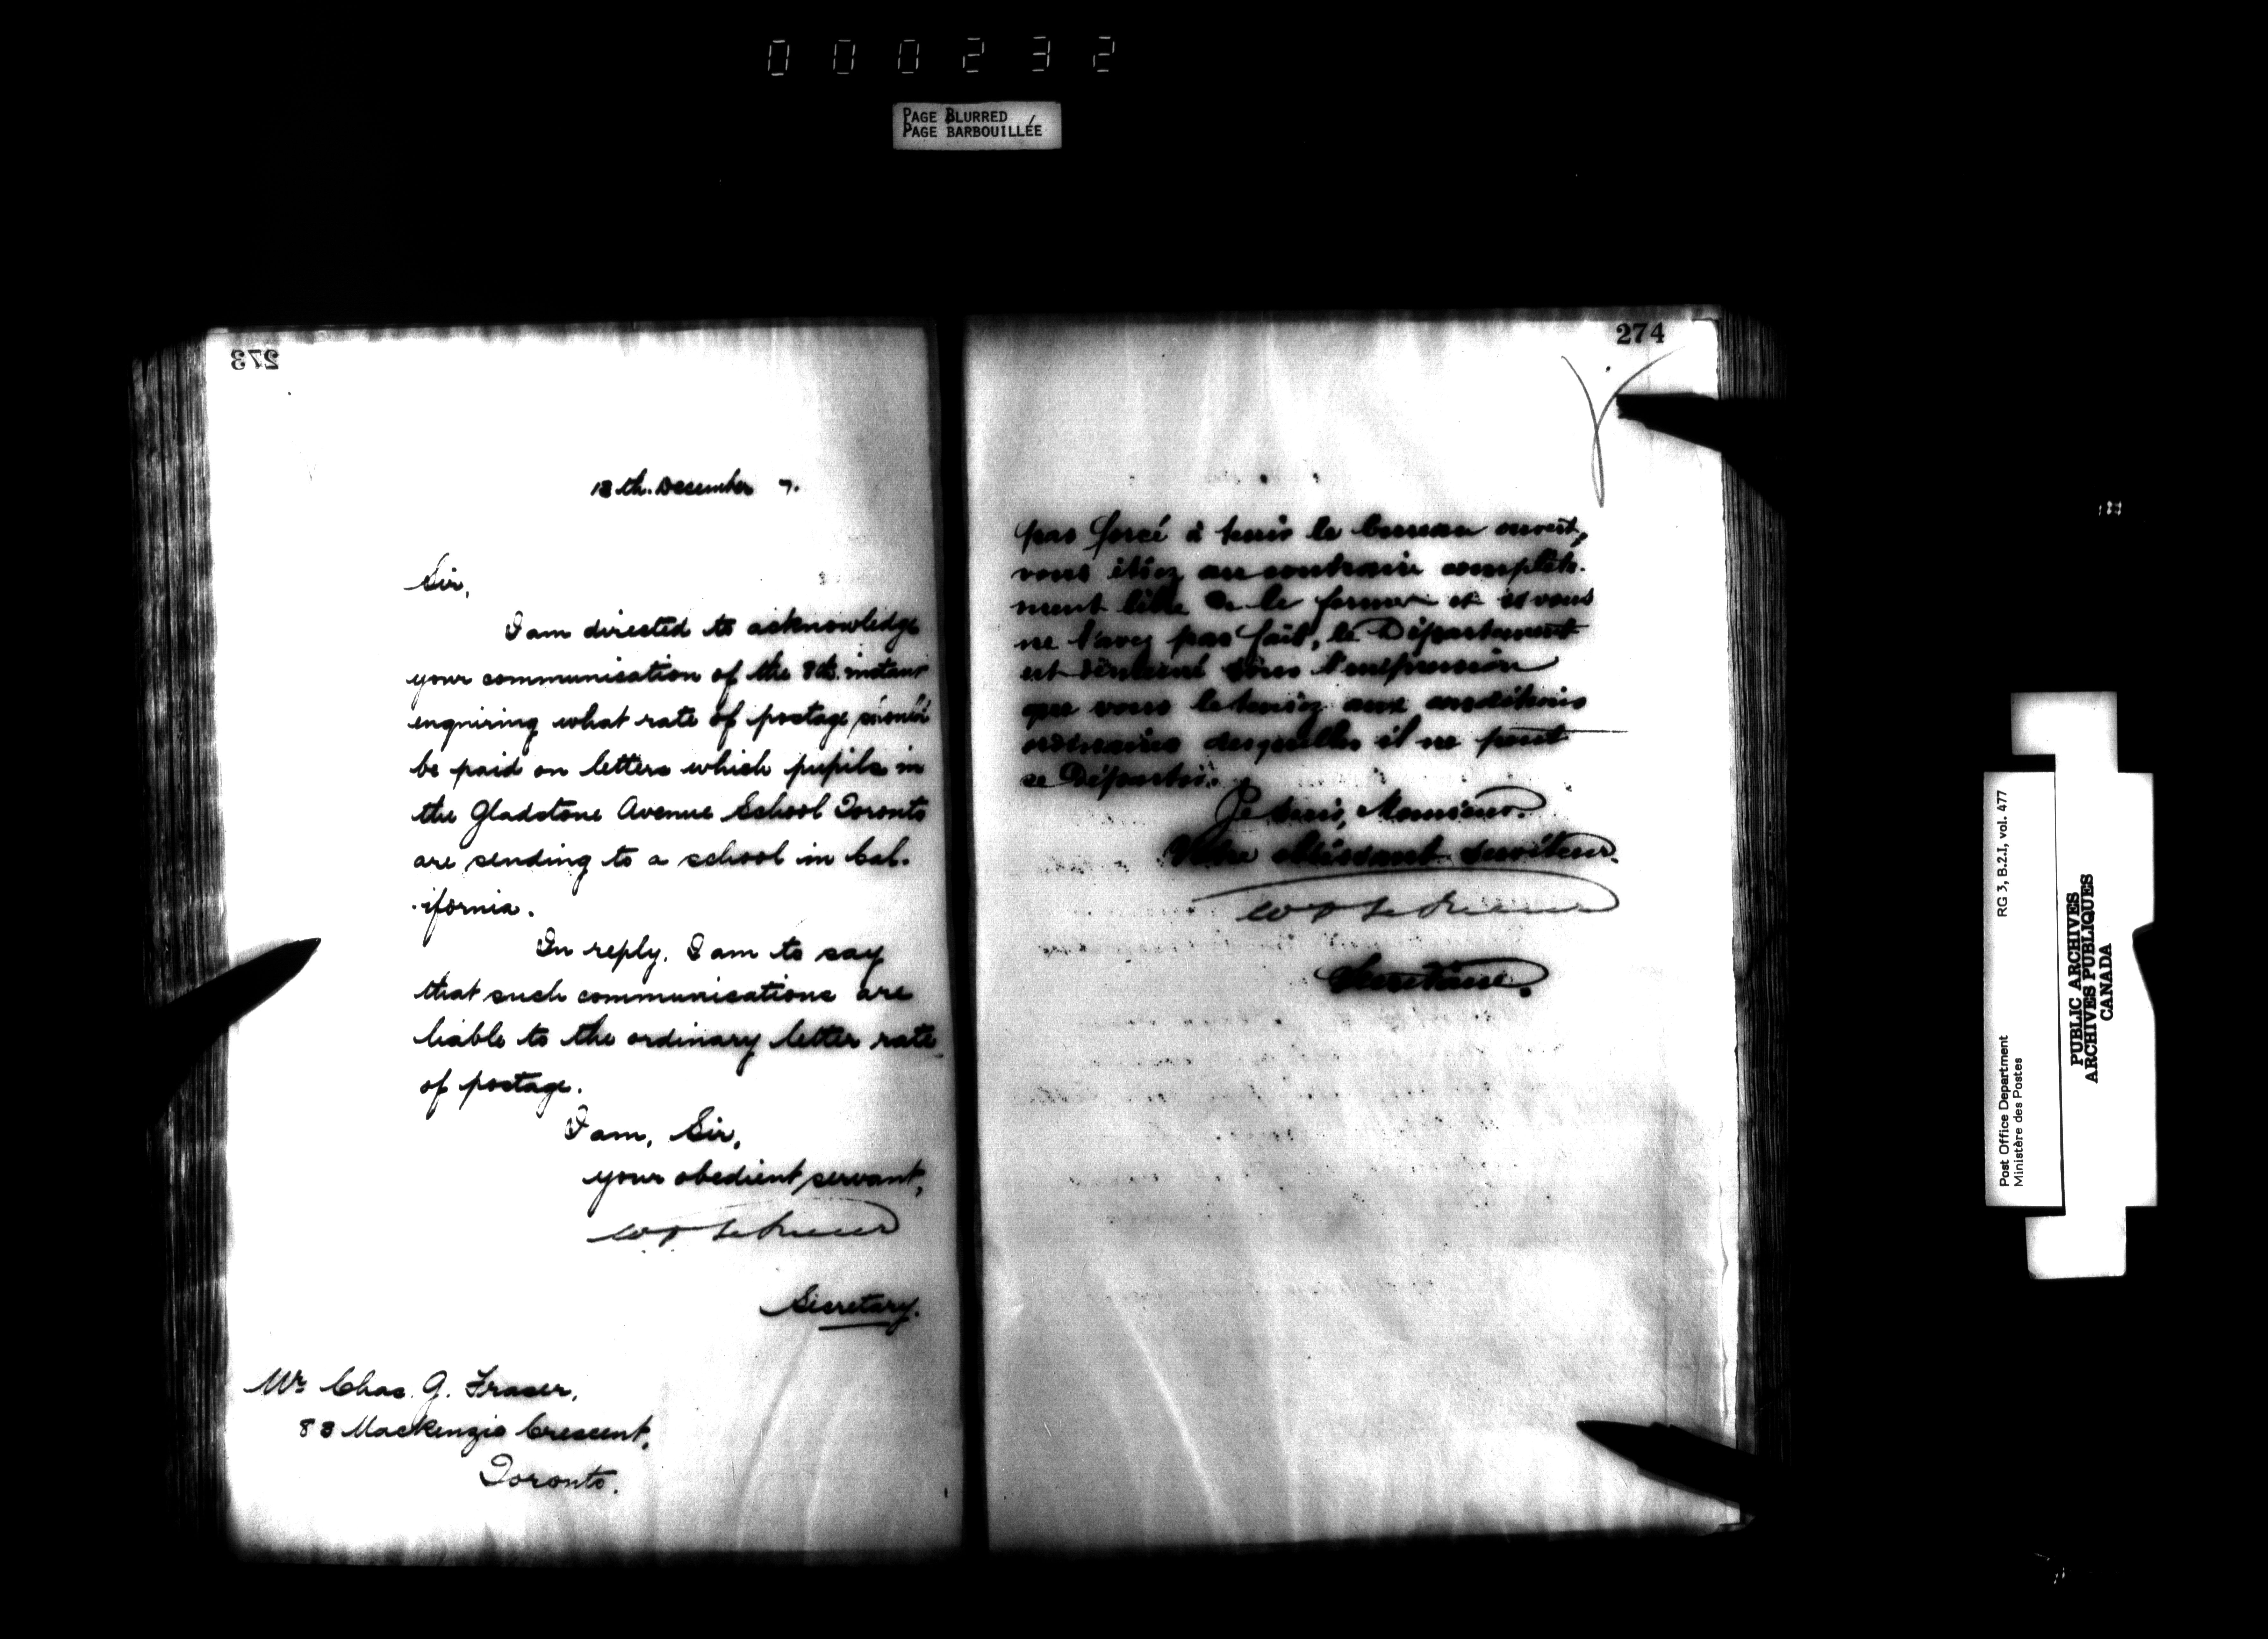 000232
PAGE BLURRED
PAGE BARBOUILLÉE
273
18th. December 7.
Sir,
I am directed to acknowledge
your communication of the 8th. instant
enquiring what rate of postage should
be paid on letters which pupils in
the Gladstone Avenue School Toronto
are sending to a school in Cal-
-ifornia.
In reply, I am to say
that such communications are
liable to the ordinary letter rate
of postage.
I am, Sir,
your obedient servant,
Secretary.
Mr Chas. G. Fraser,
83 Mackenzie Crescent,
Toronto.
274
pas forcé à tenir le bureau ouvert,
vous étiez au contraire complète-
ment libre de le fermer et si vous
ne l'avez pas fait, le Département
est sous l'impression
que vous le teniez aux conditions
ordinaires desquelles il ne peut
se Départir.
Je suis, Monsieur,
Votre obéissant serviteur.
Secrétaire.
Post Office Department
Ministère des Postes
RG 3, B.2.I, vol. 477
PUBLIC ARCHIVES
ARCHIVES PUBLIQUES
CANADA